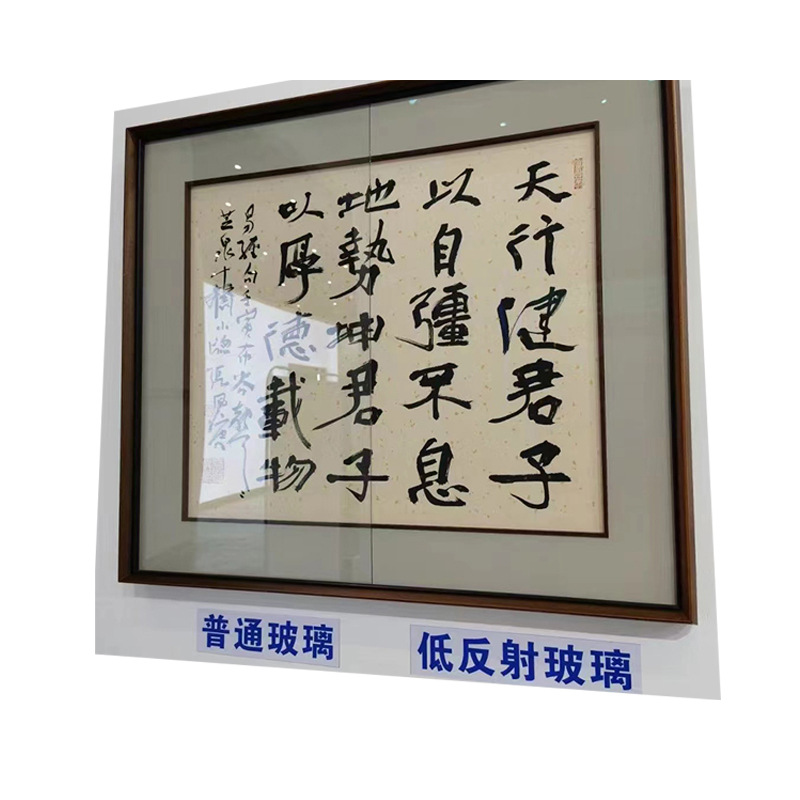 天行健君子
以自彊不息
地勢坤君子
以厚德載物
易經句壬寅
普通玻璃
低反射玻璃